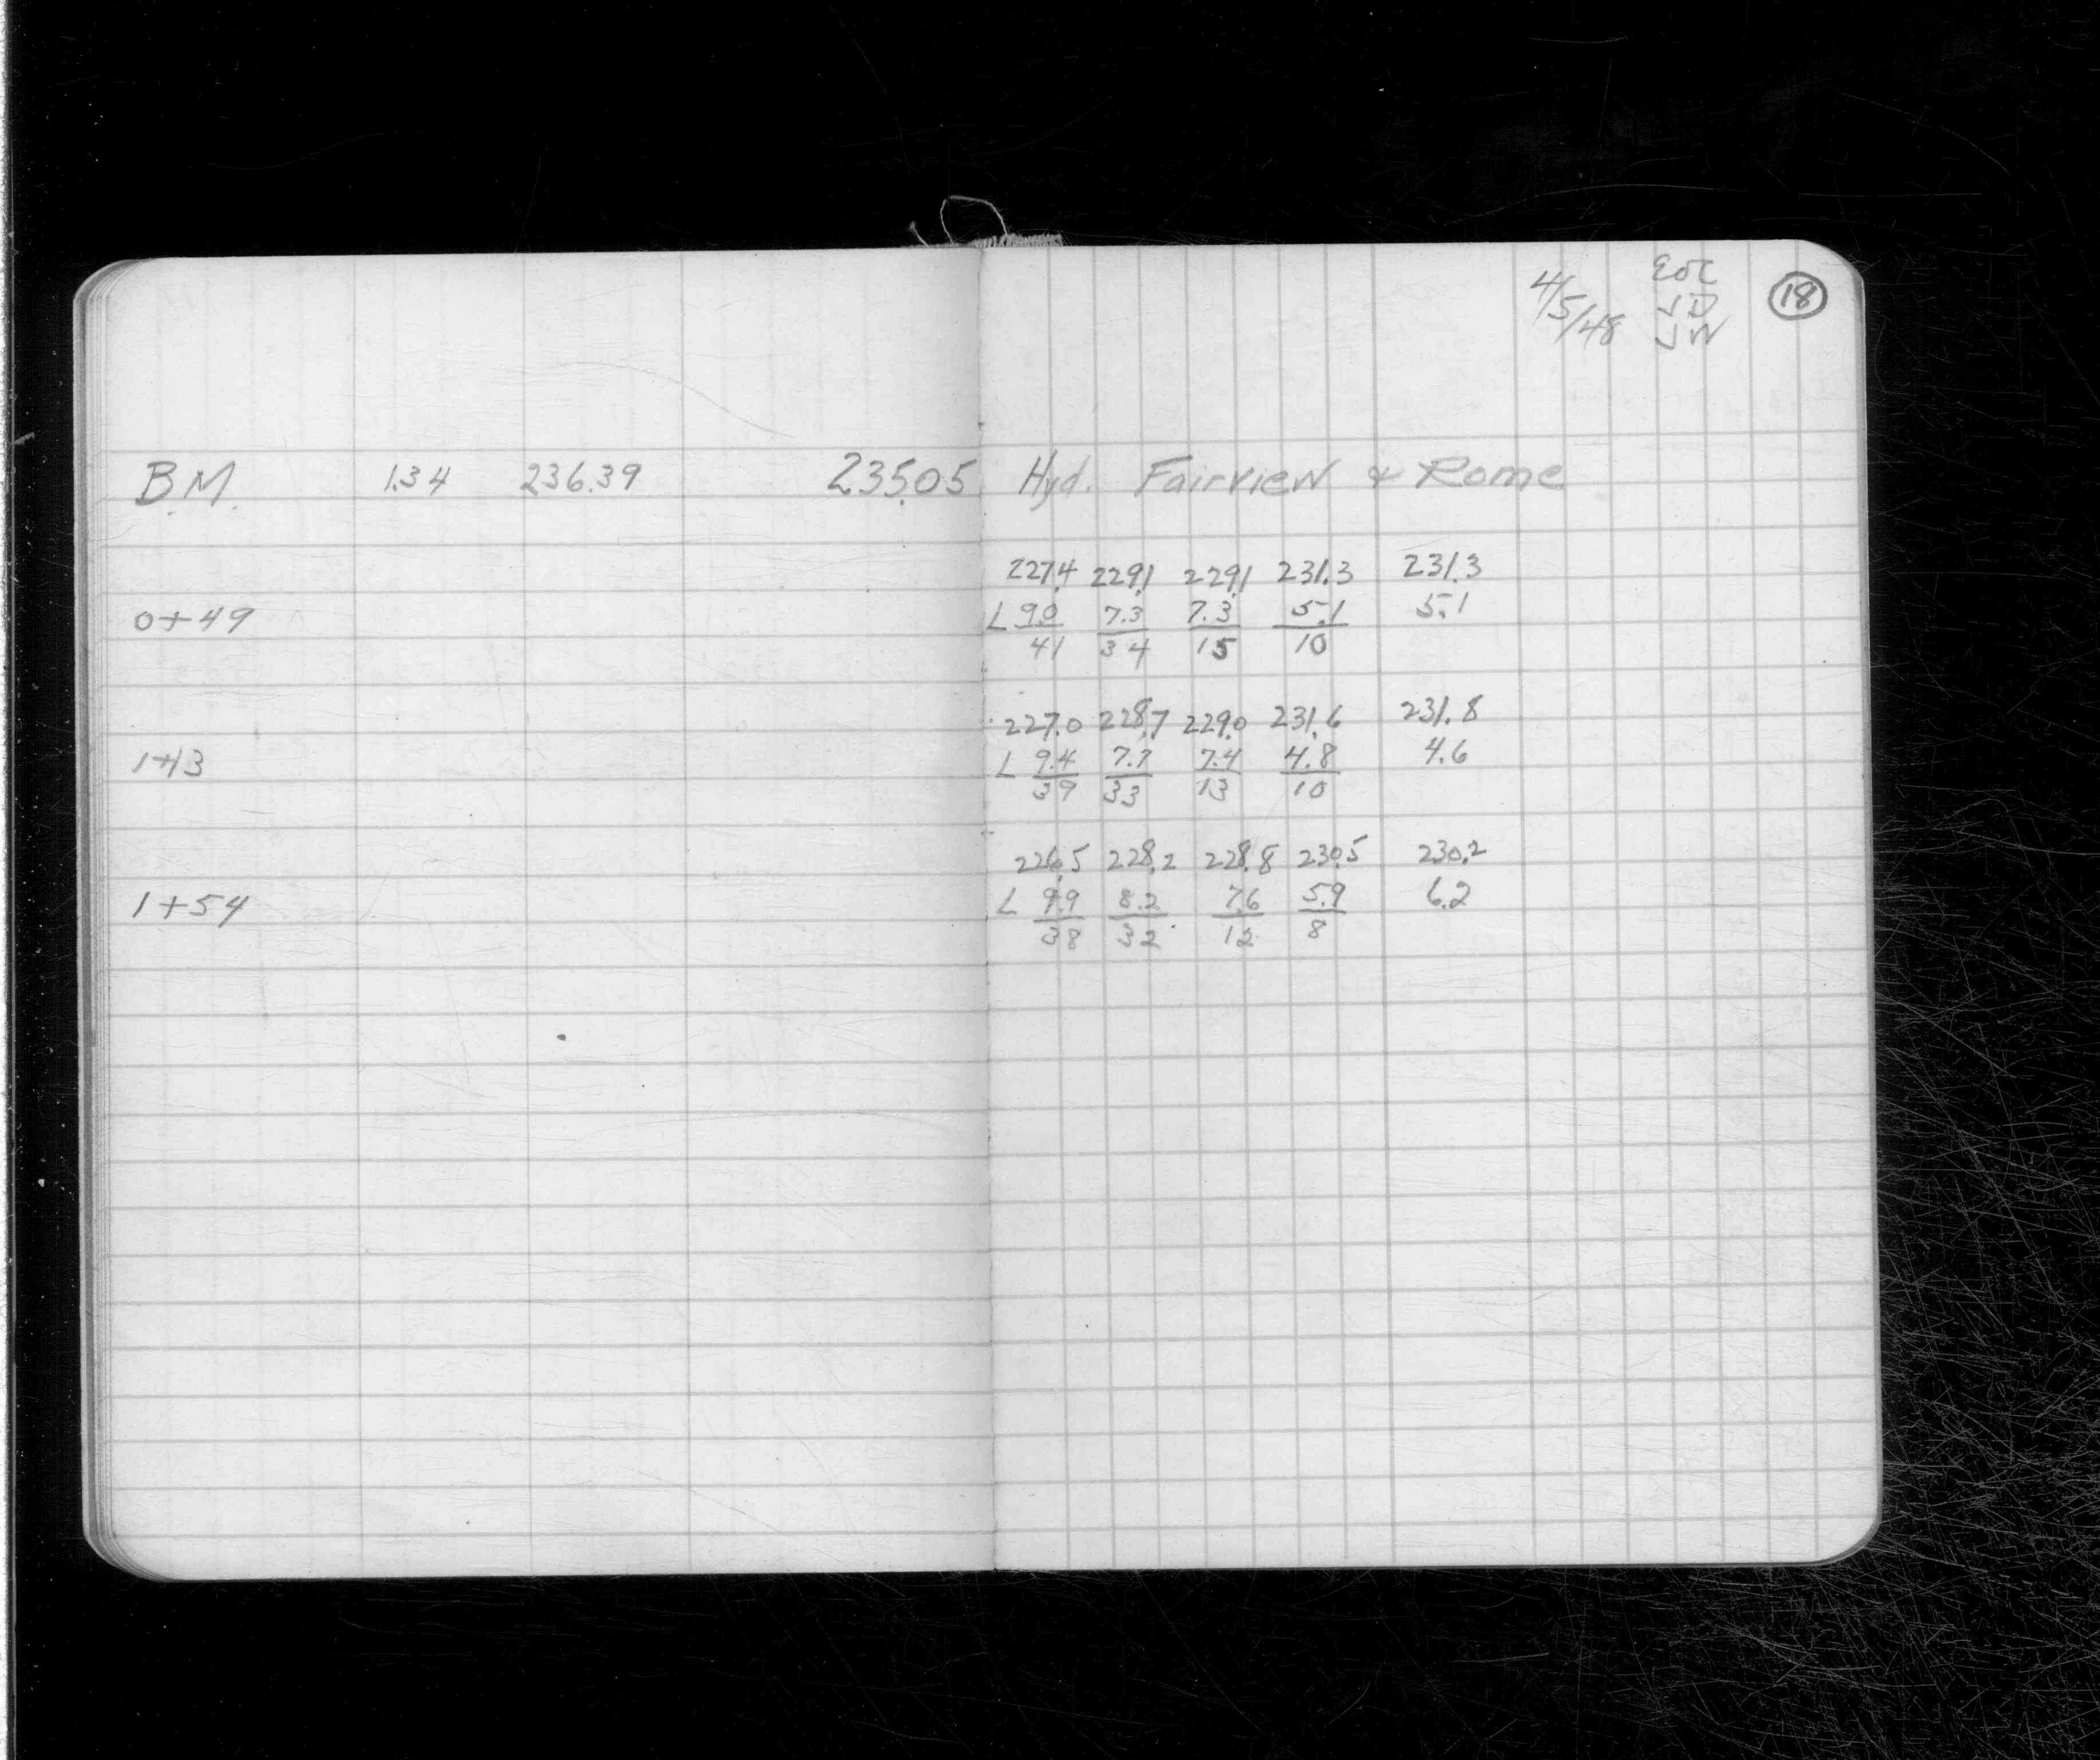 4/5/48 EOC 18
JD
JW
B.M. 1.34 236.39 235.05 Hyd. Fairview & Rome
227.4 229.1 229.1 231.3 231.3
0+49 L 9.0 7.3 7.3 5.1 5.1
41 34 15 10
227.0 228.7 229.0 231.6 231.8
1+13 L 9.4 7.7 7.4 4.8 4.6
39 33 13 10
226.5 228.2 228.8 230.5 230.2
1+54 L 9.9 8.2 7.6 5.9 6.2
38 32 12 8